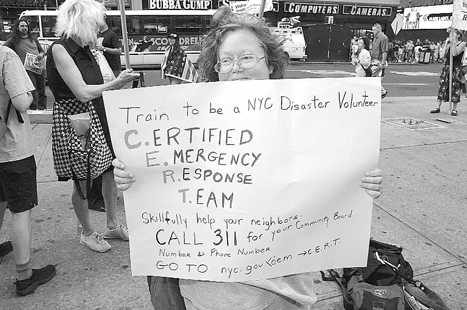 BUBBA GUMP
COMPUTERS CAMERAS
Train to be a NYC Disaster Volunteer
C.ERTIFIED
E.MERGENCY
R.ESPONSE
T.EAM
Skillfully help your neighbors.
CALL 311 for your Community Board
Number & Phone Number
GO TO nyc.gov/oem → C.E.R.T